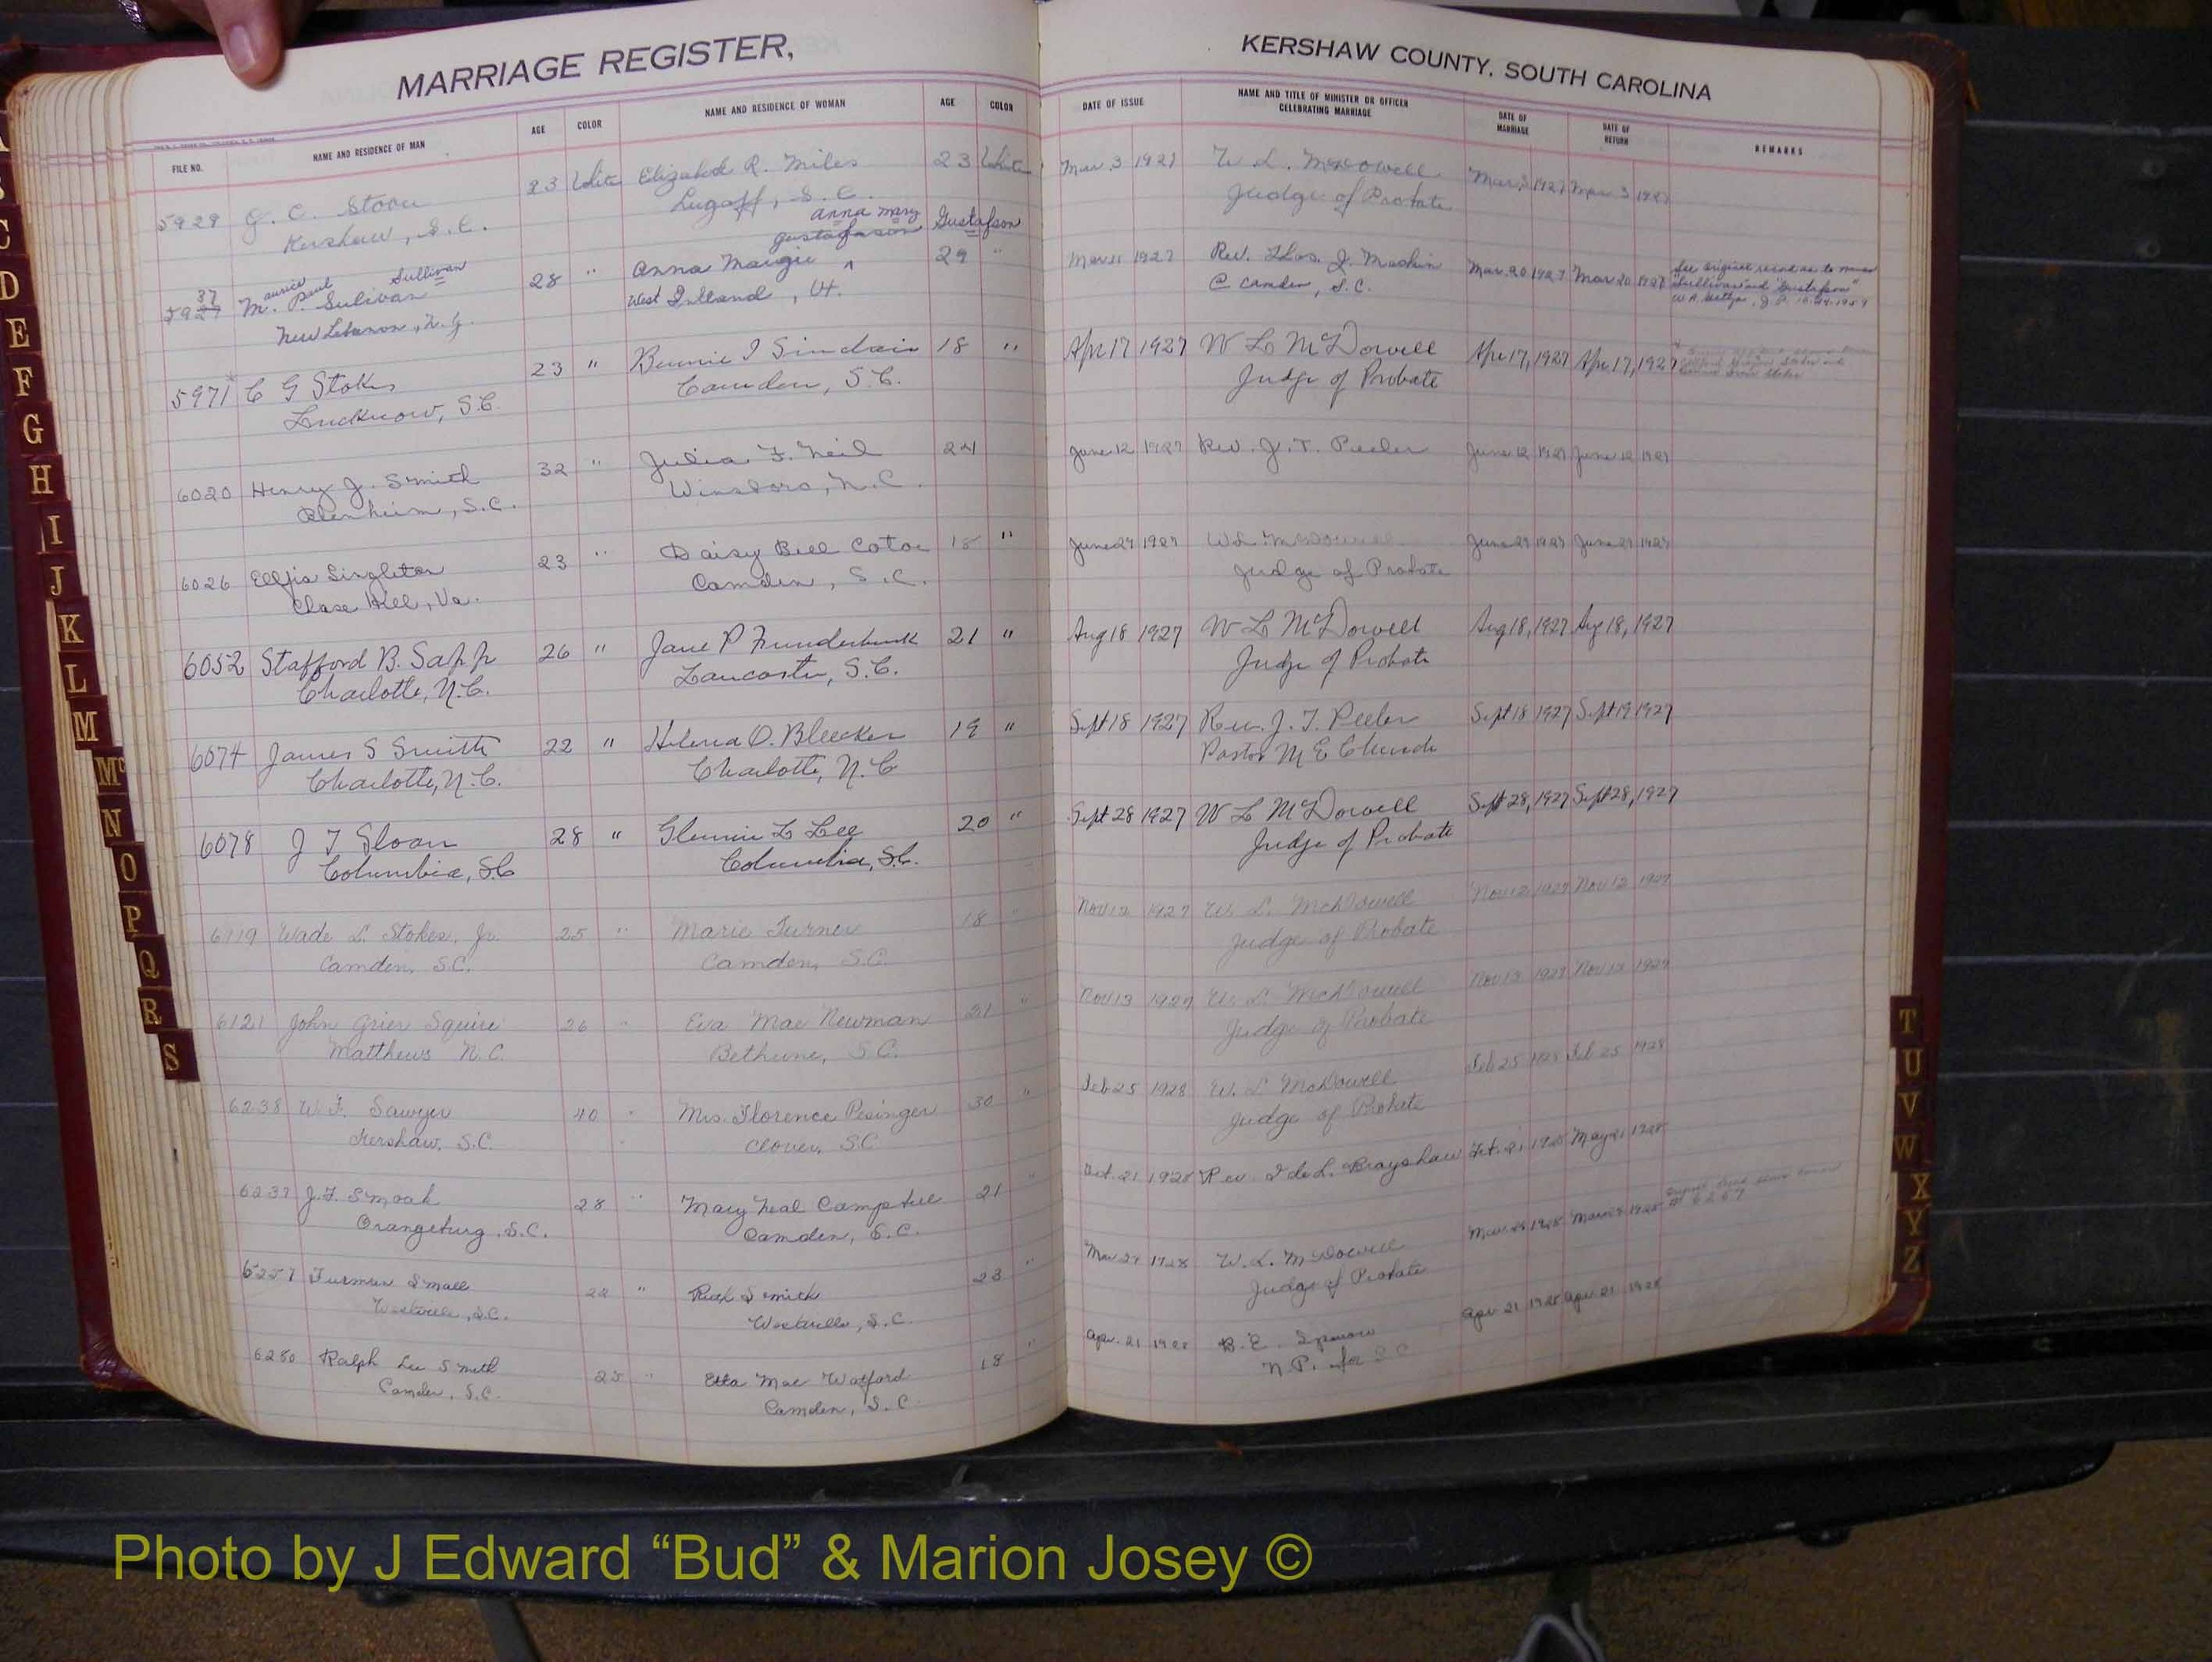 MARRIAGE REGISTER,
KERSHAW COUNTY, SOUTH CAROLINA
FILE NO. NAME AND RESIDENCE OF MAN AGE COLOR NAME AND RESIDENCE OF WOMAN AGE COLOR DATE OF ISSUE NAME AND TITLE OF MINISTER OR OFFICER CELEBRATING MARRIAGE DATE OF MARRIAGE DATE OF RETURN REMARKS
5929 J. C. 23 White Elizabeth R. Miles 23 White Mar. 3 1927 W. L. McDowell Mar. 3 1927 Mar 3 1927
Kershaw, S.C. Lugoff, S.C. Judge of Probate
Maurice Paul Sullivan Anna Mary Gustafson
37 M. P. Sulivan 28 " Anna 29 " Mar 11 1927 Rev. Thos. J. Mar. 20 1927 Mar 20 1927 See original record as to names
5927 New Lebanon, West , Vt. @ Camden, S.C. "Sullivan" and "Gustafson"
10-24-1959
5971 C G Stokes 23 " I Sinclair 18 " Apr 17 1927 W L McDowell Apr 17, 1927 Apr 17, 1927
Lucknow, S.C. Camden, S.C. Judge of Probate
6020 Henry J. Smith 32 " Julia F. Neil 24 June 12 1927 Rev. J. T. Peeler June 12 1927 June 12 1927
Blenheim, S.C. Winsboro, N.C.
6026 Singleton 23 " Daisy Bell 18 " June 27 1927 W L McDowell June 27 1927 June 27 1927
Chase Hill, Va. Camden, S.C. Judge of Probate
6052 Stafford B. Sapp 26 " Jane P Funderburk 21 " Aug 18 1927 W L McDowell Aug 18, 1927 Aug 18, 1927
Charlotte, N.C. Lancaster, S.C. Judge of Probate
6074 James S Smith 22 " Helena O. Bleecker 19 " Sept 18 1927 Rev. J. T. Peeler Sept 18 1927 Sept 19 1927
Charlotte, N.C. Charlotte, N.C Pastor M E Church
6078 J T Sloan 28 " L Lee 20 " Sept 28 1927 W L McDowell Sept 28, 1927 Sept 28, 1927
Columbia, S.C Columbia, S.C. Judge of Probate
6119 Wade L. Stokes, Jr. 25 " Marie Turner 18 " Nov 12 1927 W. L. McDowell Nov 12 1927 Nov 12 1927
Camden, S.C. Camden, S.C. Judge of Probate
6121 John Grier Squire 26 " Eva Mae Newman 21 " Nov 13 1927 W. L. McDowell Nov 13 1927 Nov 13 1927
Matthews N.C. Bethune, S.C. Judge of Probate
6238 W. F. Sawyer 40 " Mrs. Florence 30 " Feb 25 1928 W. L. McDowell Feb 25 1928 Feb 25 1928
Kershaw, S.C. Clover, S.C Judge of Probate
6237 J. F. Smoak 28 " Mary Neal Campbell 21 " 21 1928 Rev. Brayshaw 21 1928 May 21 1928
Orangeburg, S.C. Camden, S.C.
6257 Furman Small 22 " Ruth Smith 23 " Mar 29 1928 W. L. McDowell Mar 29 1928 Mar 29 1928
Westville, S.C. Westville, S.C. Judge of Probate
6280 Ralph Lee Smith 25 " Etta Mae Watford 18 " Apr. 21 1928 B. E. Sparrow Apr 21 1928 Apr 21 1928
Camden, S.C. Camden, S.C. N.P. for S.C
C
D
E
F
G
H
I
J
K
L
M
Mc
N
O
P
Q
R
S
T
U
V
W
X
Y
Z
Photo by J Edward “Bud” & Marion Josey ©